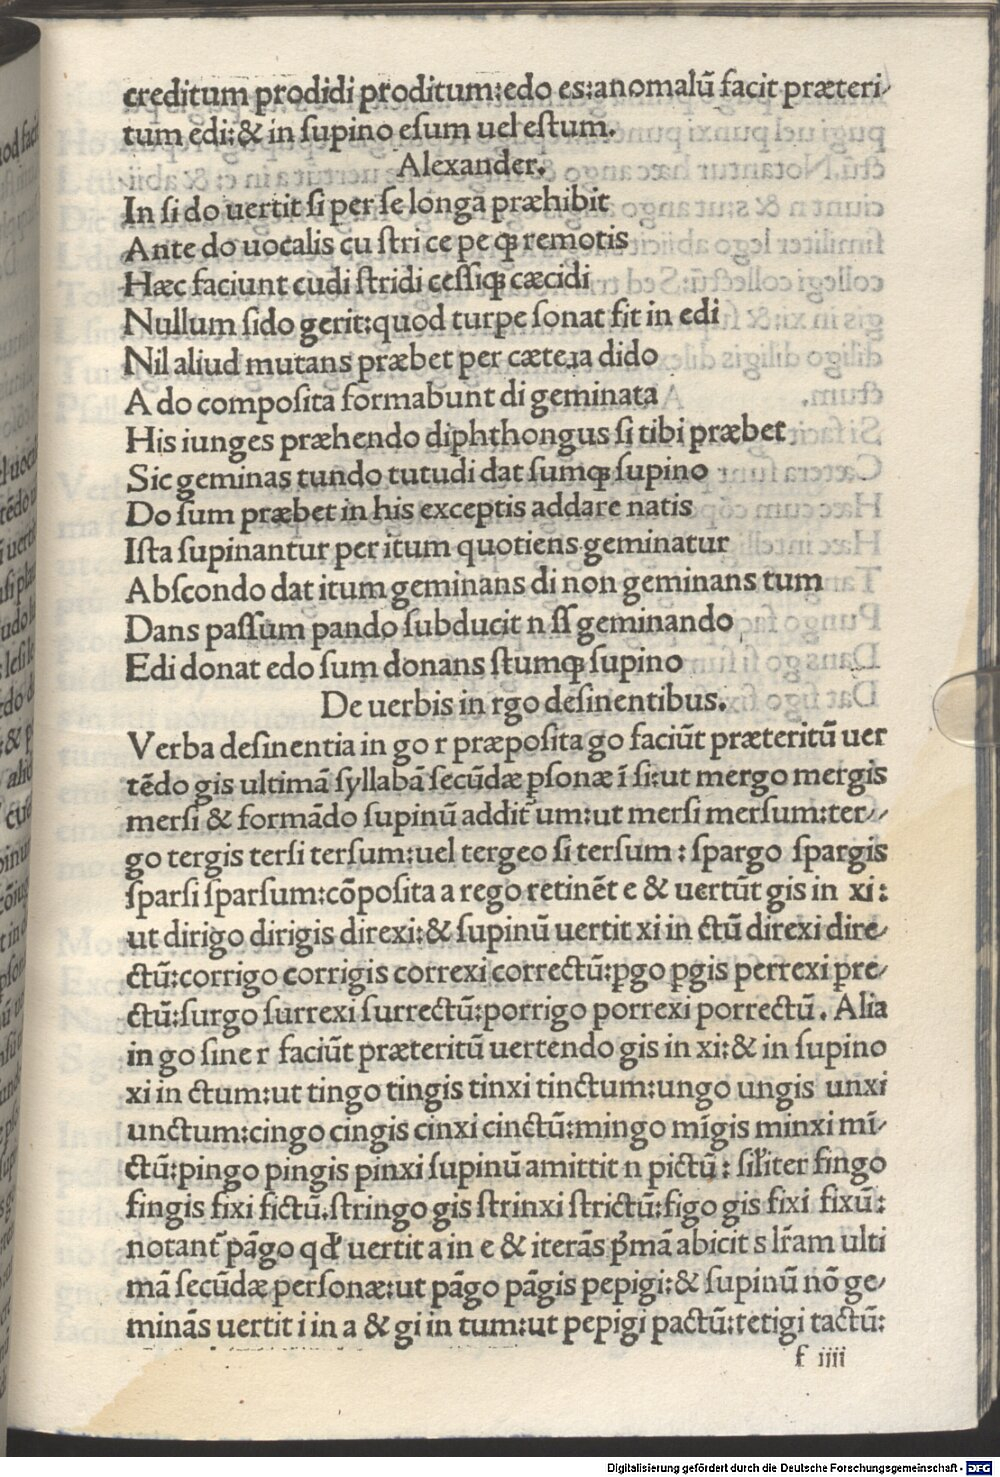 creditum prodidi proditum:edo es:anomalū facit præteri⸗
tum edi:& in ſupino eſum uel eſtum.
Alexander.
In ſi do uertit ſi per ſe longa præhibit
Ante do uocalis cu ſtri ce pe qꝫ remotis
Hæc faciunt cudi ſtridi ceſſiqꝫ cæcidi
Nullum ſido gerit:quod turpe ſonat fit in edi
Nil aliud mutans præbet per cætera dido
A do compoſita formabunt di geminata
His iunges præhendo diphthongus ſi tibi præbet
Sic geminas tundo tutudi dat ſumqꝫ ſupino
Do ſum præbet in his exceptis addare natis
Iſta ſupinantur per itum quotiens geminatur
Abſcondo dat itum geminans di non geminans tum
Dans paſſum pando ſubducit n ſſ geminando
Edi donat edo ſum donans ſtumqꝫ ſupino
De uerbis in rgo deſinentibus.
Verba deſinentia in go r præpoſita go faciūt præteritū uer
tēdo gis ultimā ſyllabā ſecūdæ pſonæ ī ſi:ut mergo mergis
merſi & formādo ſupinū addit̃ um:ut merſi merſum:ter⸗
go tergis terſi terſum:uel tergeo ſi terſum : ſpargo ſpargis
ſparſi ſparſum:cōpoſita a rego retinēt e & uertūt gis in xi:
ut dirigo dirigis direxi:& ſupinū uertit xi in ctū direxi dire⸗
ctū:corrigo corrigis correxi correctū:ꝑgo ꝑgis perrexi ꝑre⸗
ctū:ſurgo ſurrexi ſurrectū:porrigo porrexi porrectū. Alia
in go ſine r faciūt præteritū uertendo gis in xi:& in ſupino
xi in ctum:ut tingo tingis tinxi tinctum:ungo ungis unxi
unctum:cingo cingis cinxi cinctū:mingo mīgis minxi mī⸗
ctū:pingo pingis pinxi ſupinū amittit n pictū : ſiłiter fingo
fingis fixi fictū.ſtringo gis ſtrinxi ſtrictū:figo gis fixi fixū:
notant̃ pāgo qđ uertit a in e & iterās p̄mā abicit s lr̄am ulti
mā ſecūdæ perſonæ:ut pāgo pāgis pepigi:& ſupinū nō ge⸗
minās uertit i in a & gi in tum:ut pepigi pactū:tetigi tactū:
f iiii
Digitalisierung gefördert durch die Deutsche Forschungsgemeinschaft - DFG